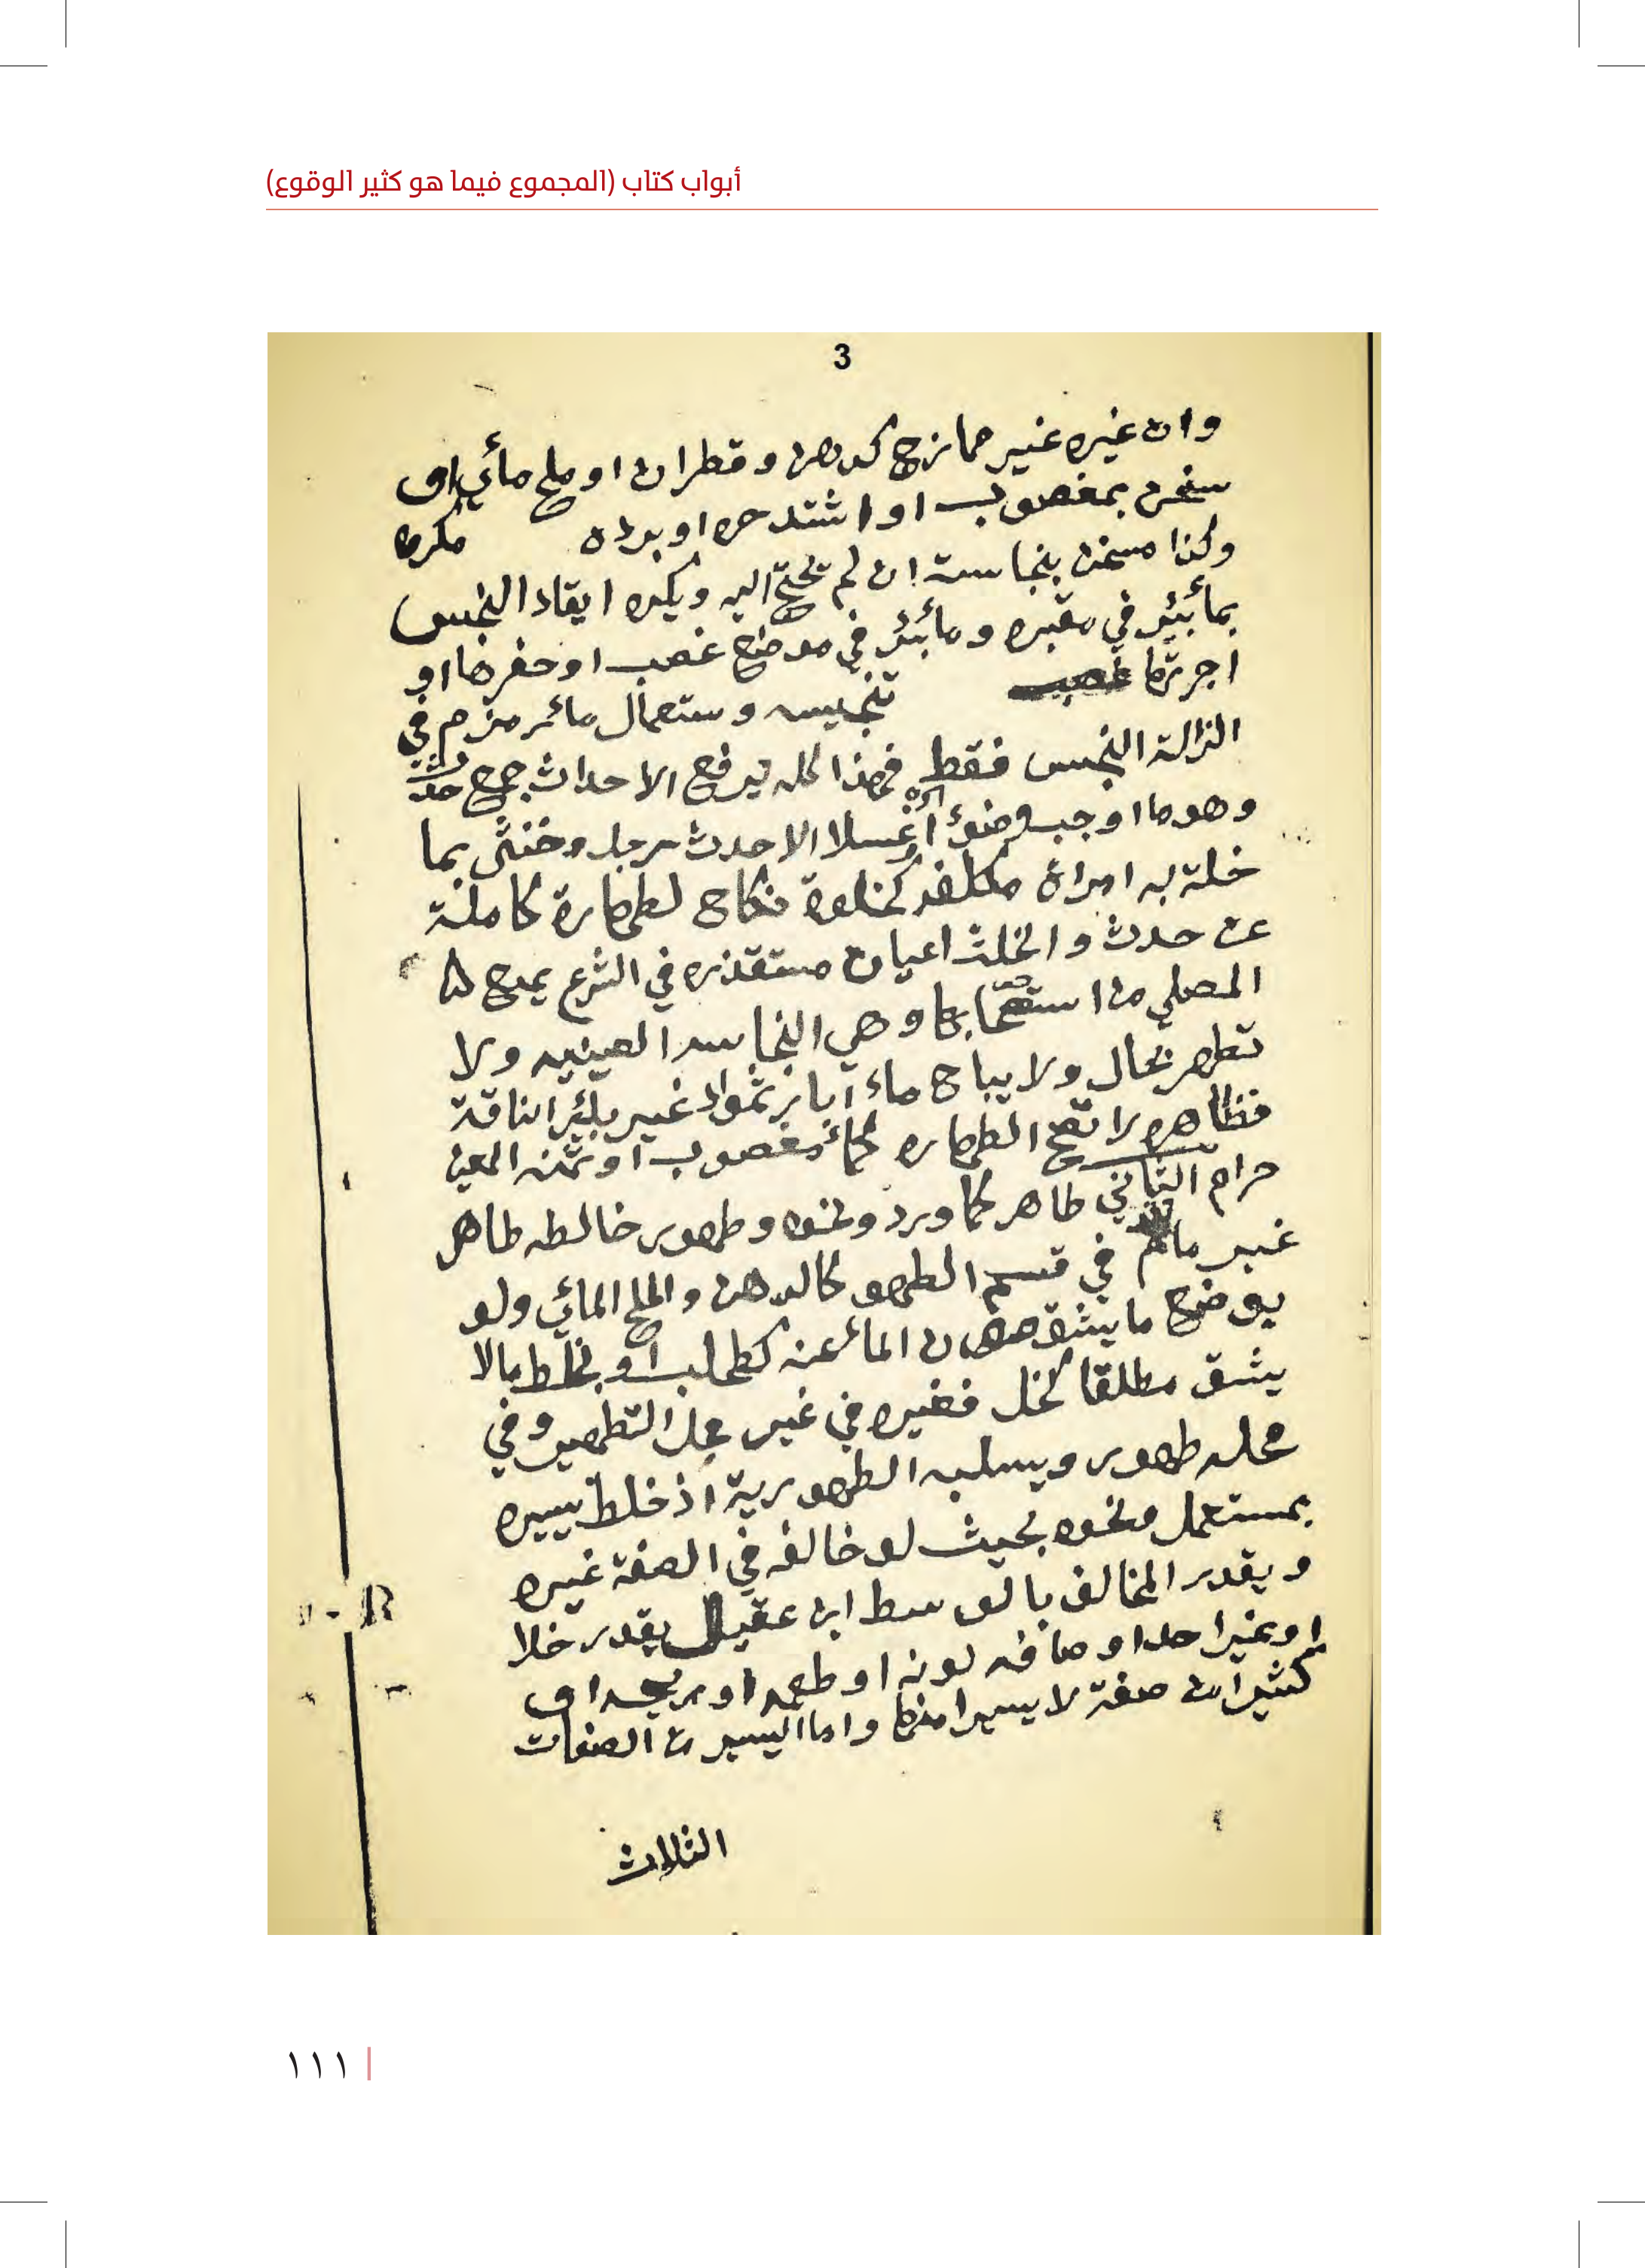 أبواب كتاب (المجموع فيما هو كثير الوقوع)
3
وان غيره غير ممازج كدهن وقطران او ملح مائي او
سخن بمغصوب او اشتد حره او برده مكره
وكذا مسخن بنجاسة ان لم يحتج اليه ويكره ايقاد النجس
بمأ بئر في مقبره ومأ بئر في موضع غصب او حفرها او
اجرتها غصب
تنجيسه وستعمال مائر مزم في
الزالة النجس فقط فهذا كله يرفع الاحداث جمع حدث
وهو ما اوجب وضوء أو غسلا الا حدث رجل وخنثى بما
خلة به امراة مكلفه كخلوة نكاح لطهارة كاملة
عن حدث والخبث اعيان مستقذره في الشرع يمنع
المصلي من استصحابها وهي النجاسه العينيه ولا
تطهر بحال ولا يباح ماء آبار ثمواد غير بئر الناقة
فظاهره لا تصح الطهاره كماء مغصوب او ثمنه المعين
حرام الثاني طاهر كماورد ونحوه وطهور خالطه طاهر
غير ما في قسم الطهو كالدهن والملح المائي ولو
بوضع ما يشق صون المأ عنه كطحلب او بخلط مالا
يشق مطلقا كخل فغيره في غير محل التطهير وفي
محله طهور ويسلبه الطهورية اذ خلط يسيره
بمستعمل ونحوه بحيث لو خالفه في الصفة غيره
ويقدر المخالف بالوسط ابن عقيل يقدر خلا
او غير احد اوصافه لونه او طعمه او ريحه او
كثيرا من صفة لا يسيرا منها واما اليسير من الصفات
الثلاث
١١١